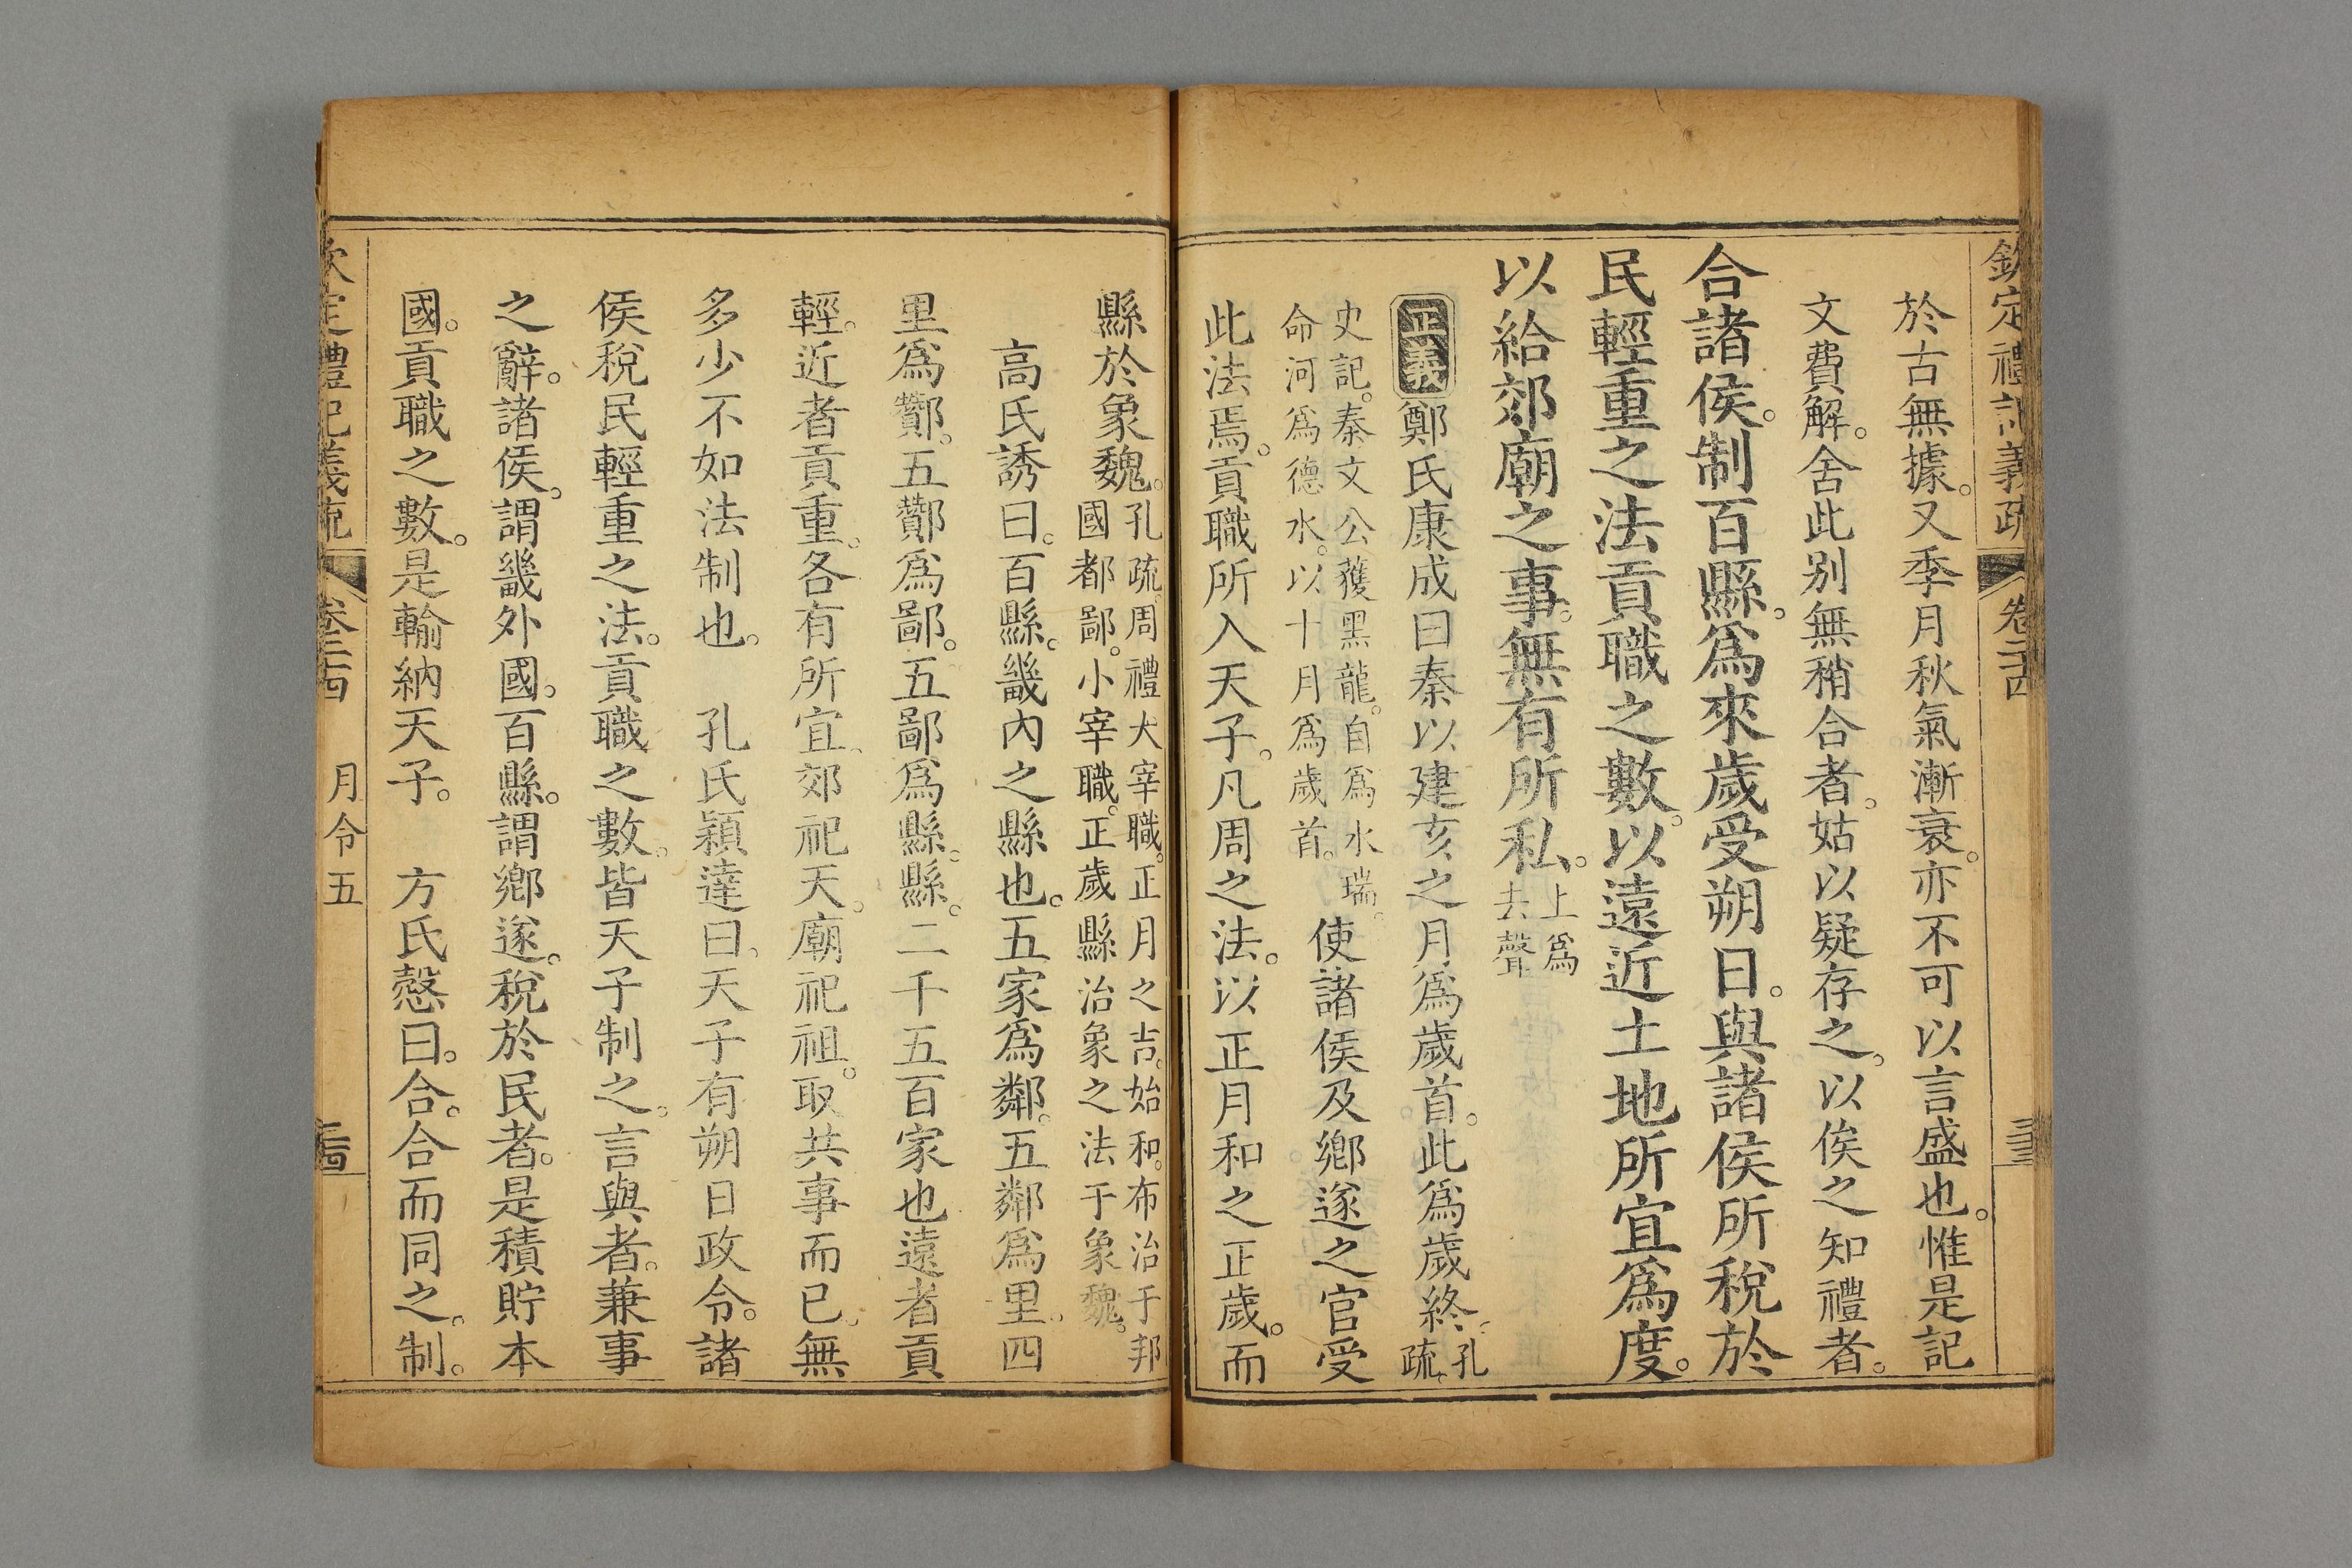 欽定禮記義疏 卷二十四
於古無據。又季月秋氣漸衰。亦不可以言盛也。惟是記
文費解。舍此別無稍合者。姑以疑存之。以俟之知禮者。
合諸侯。制百縣。爲來歲受朔日。與諸侯所稅於
民輕重之法貢職之數。以遠近土地所宜爲度。
以給郊廟之事。無有所私。上爲
去聲
正義 鄭氏康成曰秦以建亥之月爲歲首。此爲歲終。孔
疏。
史記。秦文公獲黑龍。自爲水瑞。
命河爲德水。以十月爲歲首。
使諸侯及鄉遂之官受
此法焉。貢職所入天子。凡周之法。以正月和之正歲。而
縣於象魏。孔疏。周禮大宰職。正月之吉。始和。布治于邦
國都鄙。小宰職。正歲縣治象之法于象魏。
高氏誘曰。百縣。畿內之縣也。五家爲鄰。五鄰爲里。四
里爲酇。五酇爲鄙。五鄙爲縣。縣。二千五百家也遠者貢
輕。近者貢重。各有所宜。郊祀天。廟祀祖。取共事而已。無
多少不如法制也。 孔氏穎達曰。天子有朔日政令。諸
侯稅民輕重之法。貢職之數。皆天子制之。言與者。兼事
之辭。諸侯。謂畿外國。百縣。謂鄉遂。稅於民者。是積貯本
國。貢職之數。是輸納天子。 方氏慤曰。合。合而同之。制。
欽定禮記義疏 卷三十四 月令五